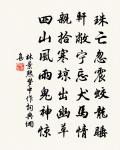 珠亡忽震蛟龍睡
軒敝寧忘犬馬情
親拾寒瓊出幽草
四山風雨鬼神驚
林景熙夢中作詞典網
集